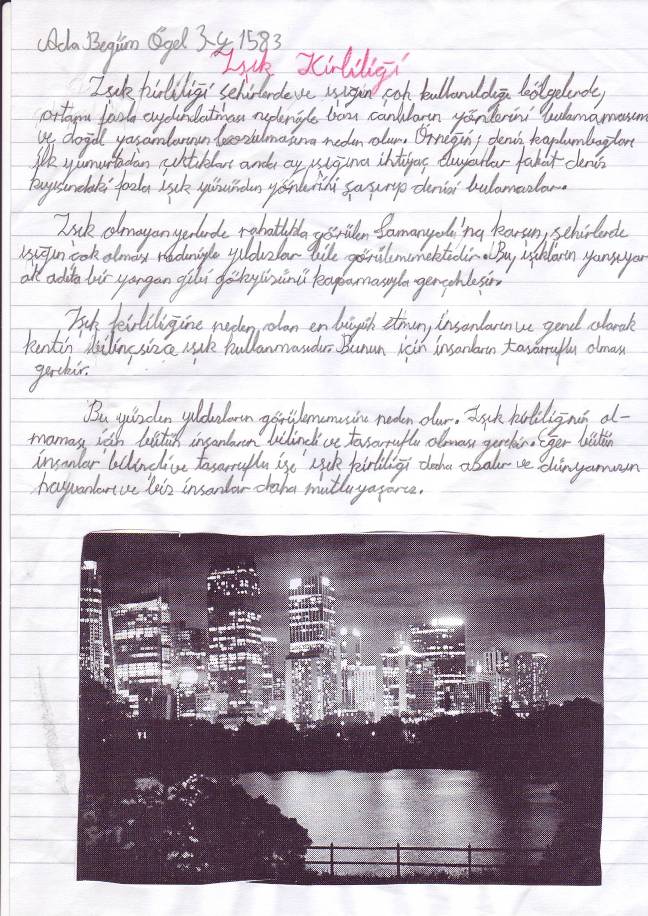 Ada Begüm Ögel 3-y 1583
Işık Kirliliği
Işık kirliliği şehirlerde ve ışığın çok kullanıldığı bölgelerde,
ortamı fazla aydınlatması nedeniyle bazı canlıların yönlerini bulamamasına
ve doğal yaşamlarının bozulmasına neden olur. Örneğin; deniz kaplumbağaları
ilk yumurtadan çıktıkları anda ay ışığına ihtiyaç duyarlar fakat deniz
kıyısındaki fazla ışık yüzünden yönlerini şaşırıp denizi bulamazlar.
Işık olmayan yerlerde rahatlıkla görülen Samanyolu'na karşın, şehirlerde
ışığın çok olması nedeniyle yıldızlar bile görülememektedir. Bu, ışıkların yansıyar-
ak adeta bir yangan gibi gökyüzünü kapamasıyla gerçekleşir.
Işık kirliliğine neden olan en büyük etmen, insanların ve genel olarak
kentin bilinçsizce ışık kullanmasıdır. Bunun için insanların tasarruflu olması
gerekir.
Bu yüzden yıldızların görülememesine neden olur. Işık kirliliğnin ol-
maması için bütün insanların bilinçli ve tasarruflu olması gerekir. Eğer bütün
insanlar bilinçli ve tasarruflu ise ışık kirliliği daha azalır ve dünyamızın
hayvanları ve biz insanlar daha mutlu yaşarız.